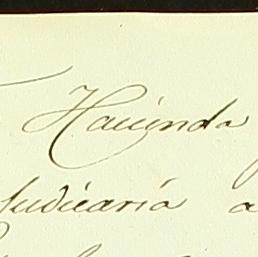 Hacienda
Judiciaria a